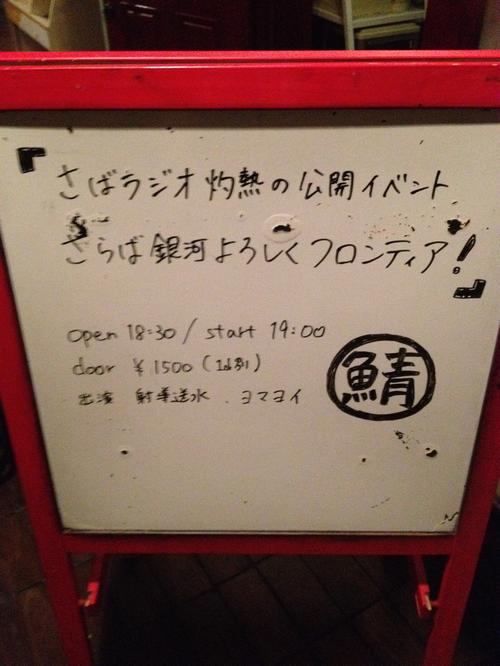 『さばラジオ灼熱の公開イベント
さらば銀河よろしくフロンティア!』
open 18:30 / start 19:00
door ¥1500 (1d別)
出演 射導送水、ヨマヨイ
鯖